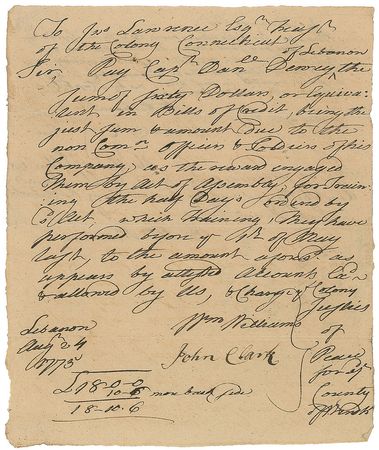 To Jno Lawrence Esqr Treasr
of the Colony Connecticut
Sir Pay Capt Danll Dewey of Lebanon the
Sum of sixty Dollars, or Equiva-
lent in Bills of Credit, being the
just sum & amount due to the
non Comn officers & Soldiers of his
Company, as the reward engaged
them by Act of Assembly, for Train-
ing the half Days ordered by
sd Act, which training, they have
performed before ye 1st of May
last, to the amount aforesd as
appears by attested Accounts
& allowed by Us, & Charge ye Colony
Wm Williams Justices
John Clark of
Peace
for sd
County
of Windh
Lebanon
Augt 24
1775
£18-0-0
10-6 more back side
18-10-6